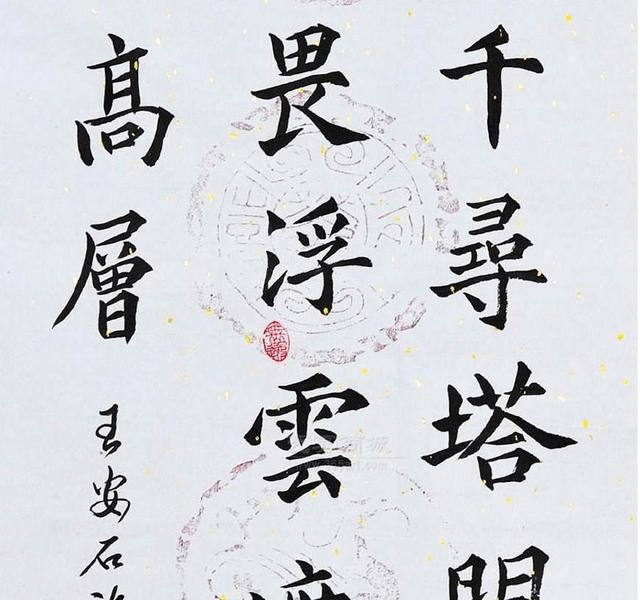 千尋塔
畏浮雲
髙層
王安石